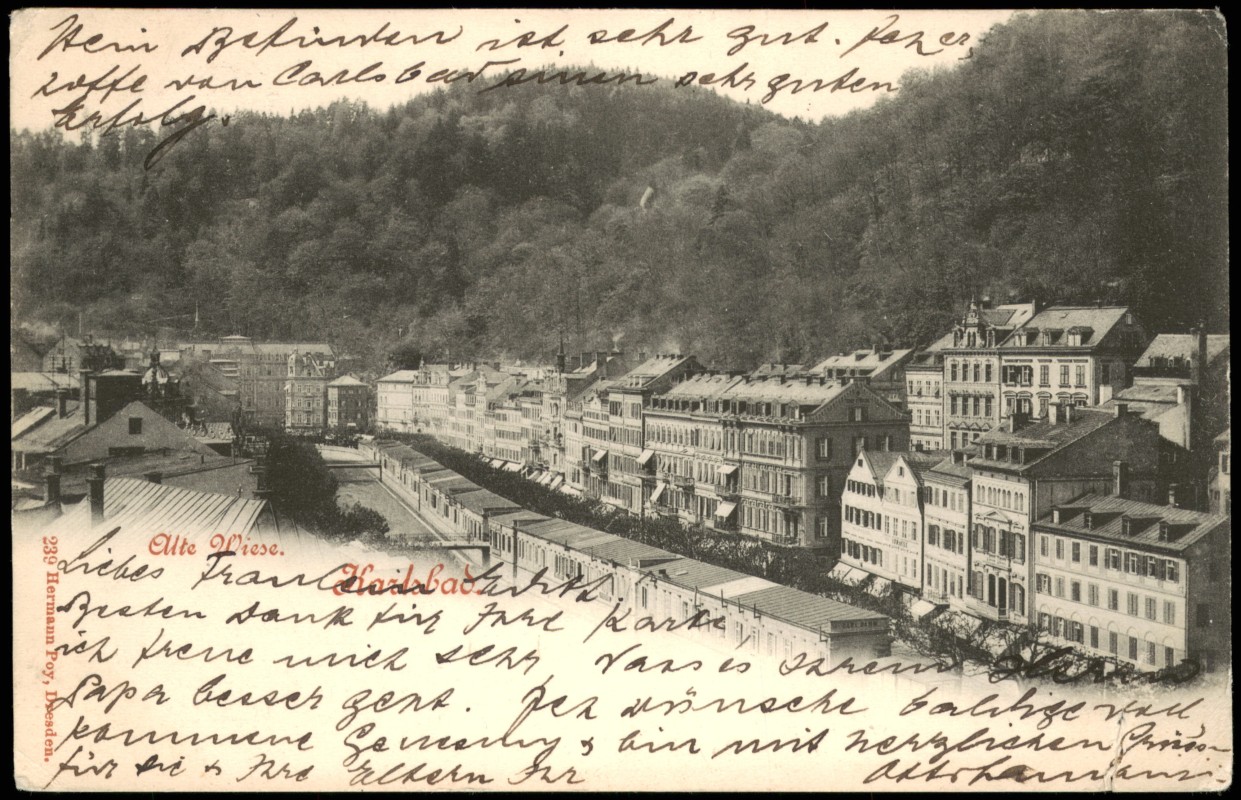 Mein Befinden ist sehr gut. Ich er,
hoffe von Carlsbad einen sehr guten
Erfolg.
Alte Wiese.
Karlsbad.
Liebes Fraulein
Besten Dank für Ihre Karte,
ich freue mich sehr dass es Ihrem Herrn
Papa besser geht. Ich wünsche baldige voll,
kommene Genesung & bin mit herzlichen Grüss-
für Sie & Ihre Eltern Ihr
239 Hermann Poy, Dresden.